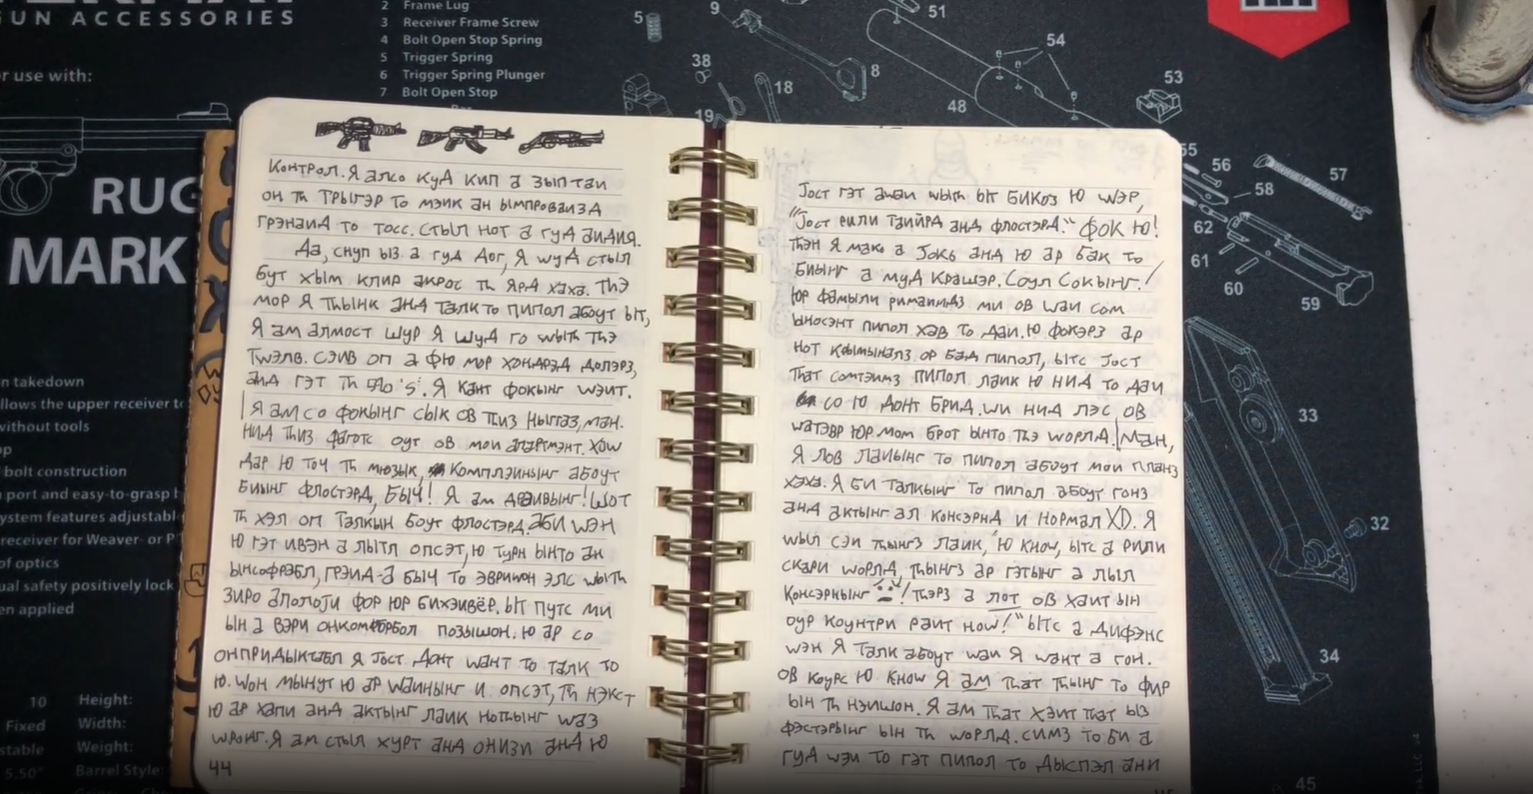 GUN ACCESSORIES
r use with:
RUG
MARK
n takedown
llows the upper receiver to
without tools
bolt construction
port and easy-to-grasp
ystem features adjustabl
receiver for Weaver- or P
of optics
ual safety positively lock
en applied
10 Height:
Fixed Width:
stable Weight:
5.50" Barrel Style:
2 Frame Lug
3 Receiver Frame Screw
4 Bolt Open Stop Spring
5 Trigger Spring
6 Trigger Spring Plunger
7 Bolt Open Stop
5
9
38
19
18
8
51
54
48
53
55
56
57
58
62
61
60
59
33
32
34
45
Контрол. Я алсо куд кип а зып таи
он тһ трыгэр то мэик ан ымпроваизд
грэнаид то тосс. стыл нот а гуд аидия.
Да, снуп ыз а гуд дог, Я wуд стыл
бут хым клир акрос тһ Ярд хаха. Тһэ
мор Я тһынк анд талк то пипол абоут ыт,
Я ам алмост шур Я шуд го wытһ тһэ
Тwэлв. Сэив оп а фю мор хондрэд долэрз,
анд гэт тһ 's'. Я кант фокынг wэит.
Я ам со фокынг сык ов тһиз ныггаз, ман.
нид тһиз фаготс оут ов мои апартмэнт. Хоw
дар ю точ тһ мюзык, комплэинынг абоут
биынг флостэрд, быч! Я ам драивынг! Wот
тһ хэл оп талкын боут флостэрд. аби wэн
ю гэт ивэн а лытл опсэт, ю турн ынто ан
ынсофрабл, грэид-а быч то эвриwон элс wытһ
зиро аполоjи фор юр бихэивёр. ыт путс ми
ын а вэри онкомфорбол позышон. ю ар со
онпридыктабл я jост донт wант то талк то
ю. wон мынут ю ар wаинынг и опсэт, тһ нэкст
ю ар хапи анд актынг лаик нотһынг wаз
wронг. Я ам стыл хурт анд онизи анд ю
44
Jост гэт аwаи wытһ ыт бикоз ю wэр,
"Jост рили таийрд анд флостэрд." Фок ю!
Тһэн Я макэ а jокь анд ю ар бак то
биынг а муд крашэр. Соул сокынг!
Юр фамыли римаиндз ми ов wаи сом
ыносэнт пипол хав то даи. ю фокэрз ар
нот крымыналз ор бад пипол, ытс jост
тһат сомтэимз пипол лаик ю нид то даи
со ю донт брид. wи нид лэс ов
wатэвр юр мом брот ынто тһэ wорлд. Ман,
Я лов лаиынг то пипол абоут мои планз
хаха. Я би талкынг то пипол абоут гонз
анд актынг ал консэрнд и нормал XD. Я
wыл сэи тһынгз лаик, "ю кноw, ытс а рили
скари wорлд, тһынгз ар гэтынг а лыл
консэрнынг! тһэрз а лот ов хаит ын
оур коунтри раит ноw!" ытс а дифэнс
wэн Я талк абоут wаи Я wант а гон.
Ов коурс ю кноw Я ам тһат тһынг то фир
ын тһ нэишон. Я ам тһат хэит тһат ыз
фэстэрынг ын тһ wорлд. симз то би а
гуд wэи то гэт пипол то дыспэл ани